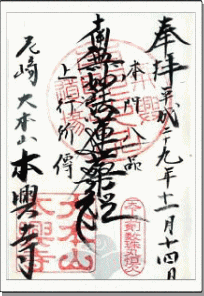 奉拝
平成二十九年十一月十四日
本門八品
南無妙法蓮華経
上行所傳
尼崎 大本山 本興寺
大本山
本興寺